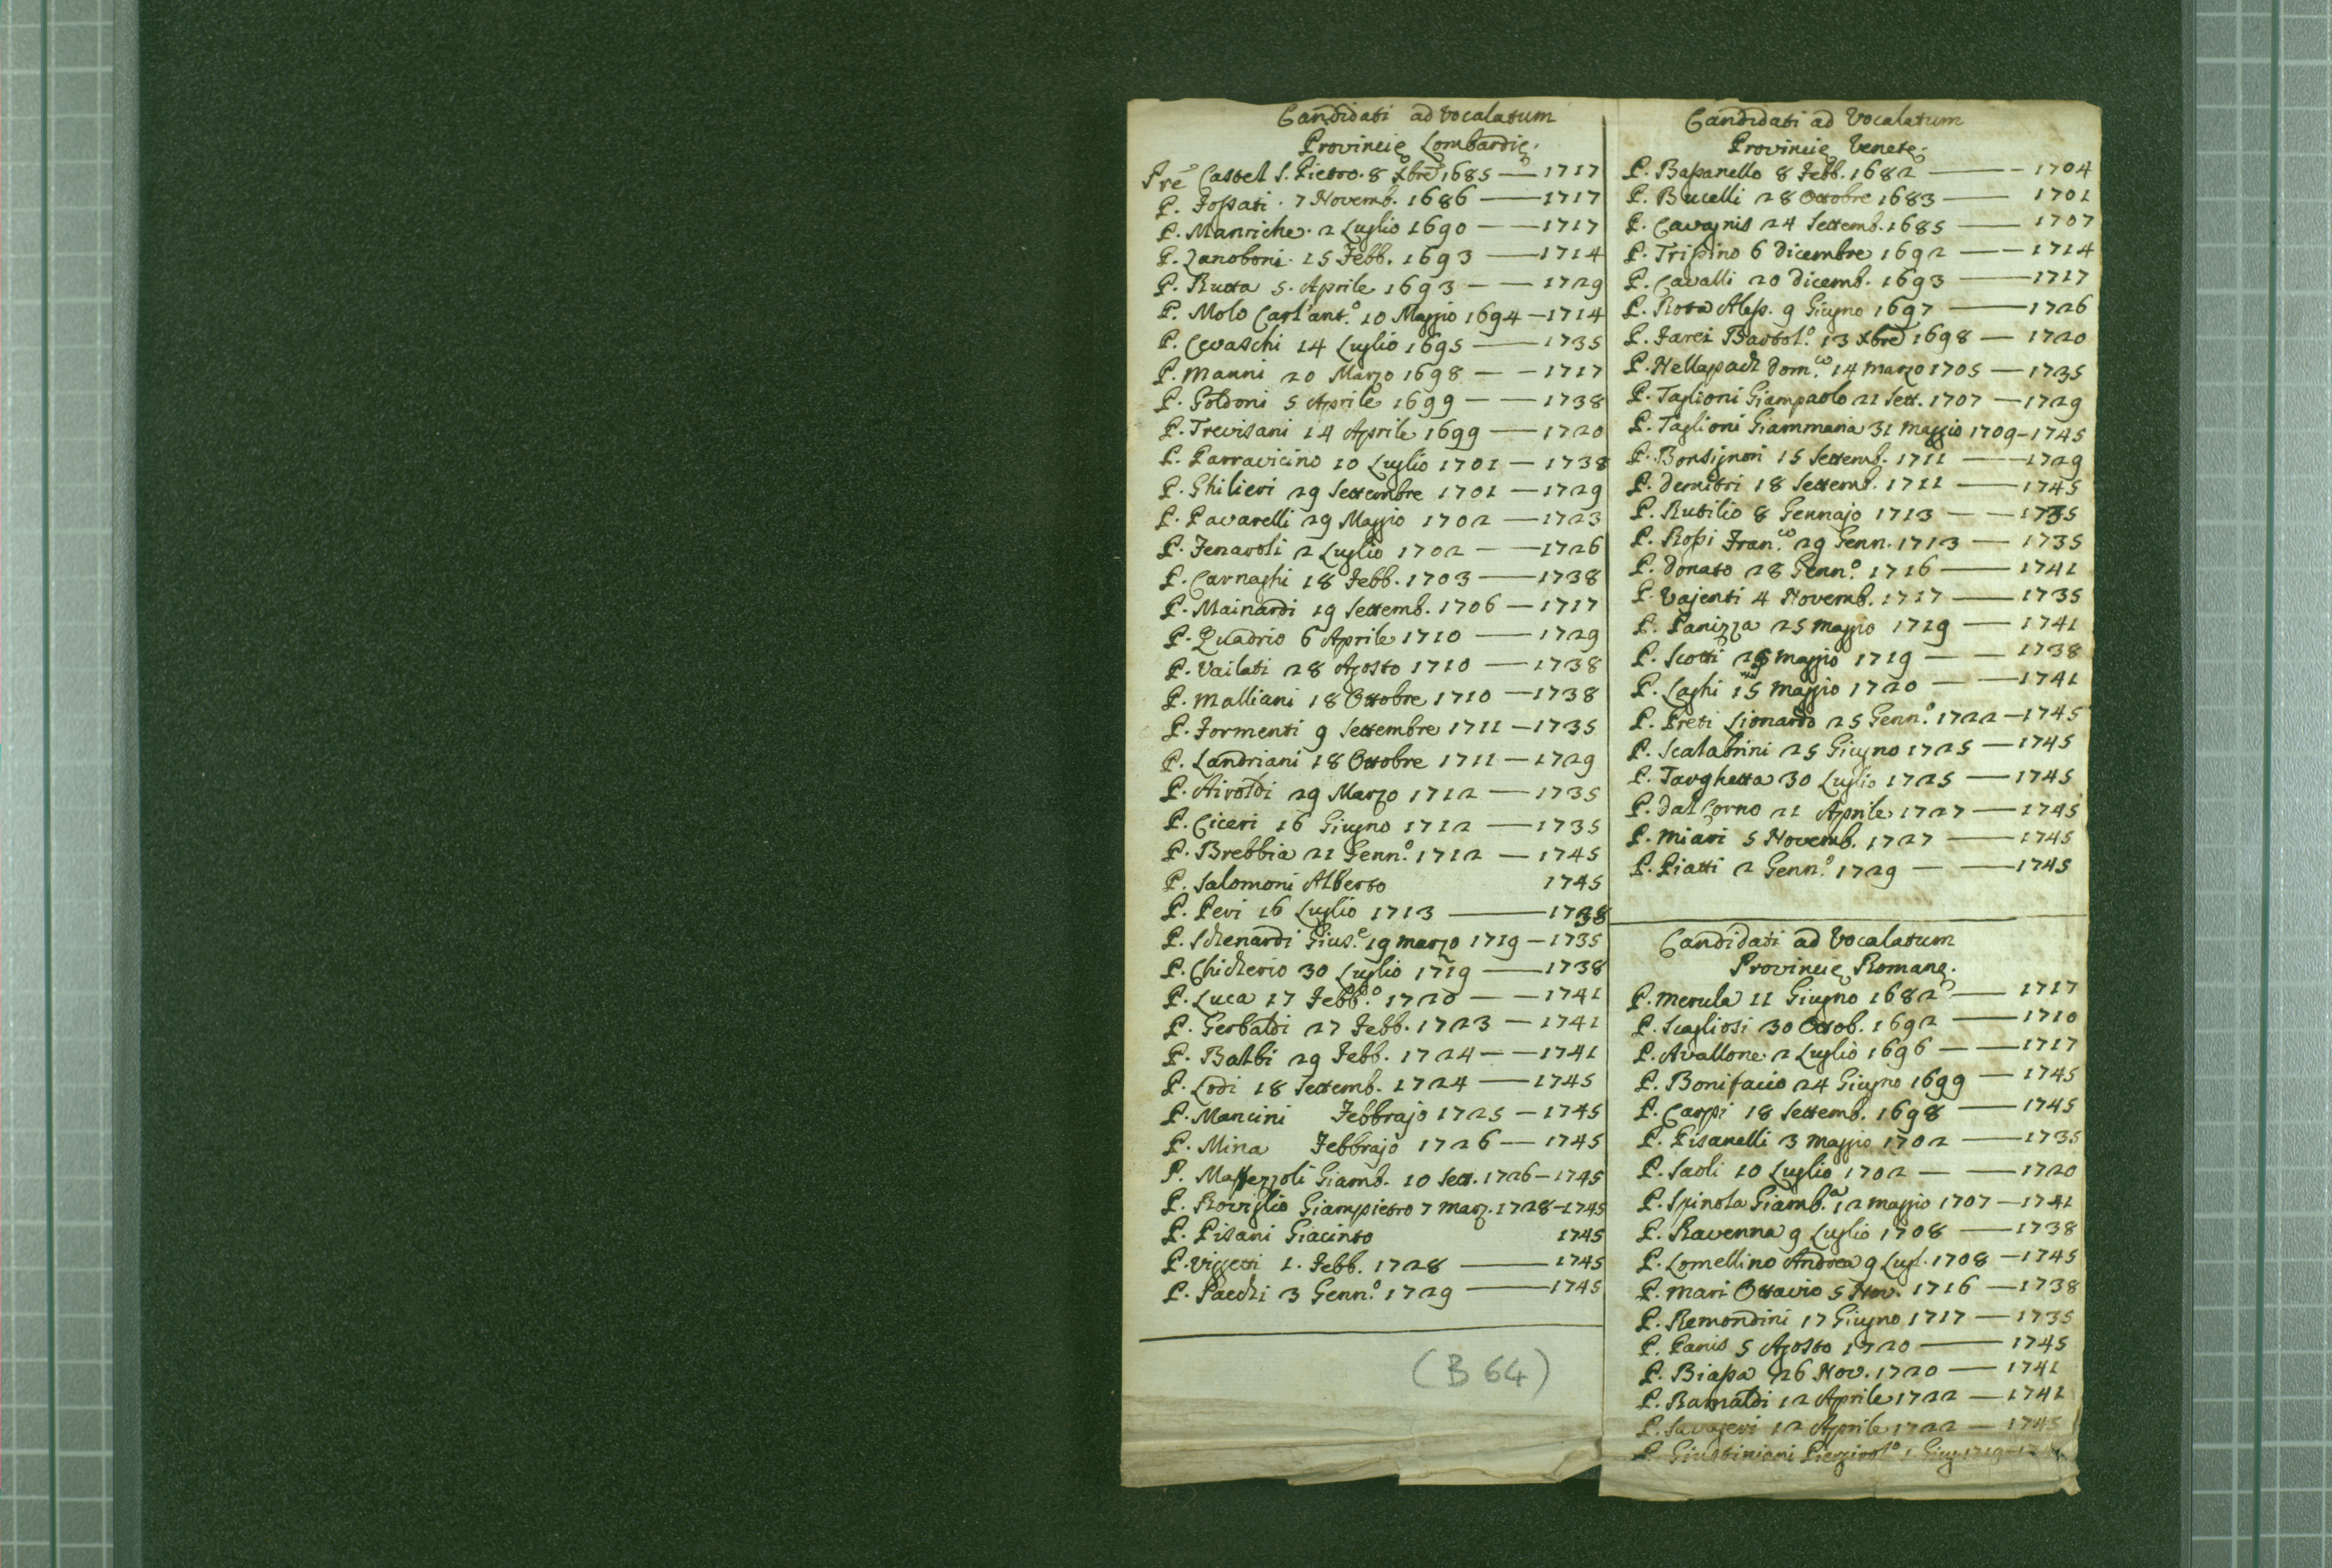 Candidati ad vocalatum
Provincię Lombardię.
Pre Castel S. Pietro. 8 Xbre 1685 — 1717
P. Fossati. 7 Novemb. 1686 — 1717
P. Manriche. 2 Luglio 1690 — — 1717
P. Zanoboni. 15 Febb. 1693 — 1714
P. Rusca 5. Aprile 1693 — — 1729
P. Molo Carl'ant.º 10 Maggio 1694 — 1714
P. Cevaschi 14 Luglio 1695 — 1735
P. Manni 20 Marzo 1698 — — 1717
P. Goldoni 5 Aprile 1699 — — 1738
P. Trevisani 14 Aprile 1699 — 1720
P. Parravicino 10 Luglio 1701 — 1738
P. Ghilieri 29 Settembre 1701 — 1729
P. Pavarelli 29 Maggio 1702 — 1723
P. Fenaroli 2 Luglio 1702 — — 1726
P. Carnaghi 18 Febb. 1703 — 1738
P. Mainardi 19 Settemb. 1706 — 1717
P. Quadrio 6 Aprile 1710 — 1729
P. Vailati 28 Agosto 1710 — 1738
P. Malliani 18 Ottobre 1710 — 1738
P. Formenti 9 Settembre 1711 — 1735
P. Landriani 18 Ottobre 1711 — 1729
P. Airoldi 29 Marzo 1712 — 1735
P. Ciceri 16 Giugno 1712 — 1735
P. Brebbia 21 Genn.º 1712 — 1745
P. Salomoni Alberto 1745
P. Peri 16 Luglio 1713 — 1738
P. Schenardi Gius.e 19 marzo 1719 — 1735
P. Chicherio 30 Luglio 1719 — 1738
P. Luca 17 Febb.º 1720 — — 1741
P. Gerbaldi 27 Febb. 1723 — 1741
P. Balbi 29 Febb. 1724 — — 1741
P. Lodi 18 Settemb. 1724 — 1745
P. Mancini Febbrajo 1725 — 1745
P. Mina Febbrajo 1726 — 1745
P. Massezzoli Giamb. 10 Sett. 1726 — 1745
P. Roviglio Giampietro 7 Marz. 1728 — 1745
P. Pisani Giacinto 1745
P. Viggeti 1. Febb. 1728 — 1745
P. Pacchi 3 Genn.º 1729 — 1745
(B 64)
Candidati ad Vocalatum
Provincię Venetę.
P. Bassanello 8 Febb. 1682 — 1704
P. Bucelli 28 Ottobre 1683 — 1701
P. Cavagnis 24 Settemb. 1685 — 1707
P. Trissino 6 Dicembre 1692 — — 1714
P. Cavalli 20 Dicemb. 1693 — 1717
P. Rota Aless. 9 Giugno 1697 — 1726
P. Farei Bartol.º 13 Xbre 1698 — 1720
P. Hellapach Dom.co 14 marzo 1705 — 1735
P. Taglioni Giampaolo 21 Sett. 1707 — 1729
P. Taglioni Giammaria 31 maggio 1709 - 1745
P. Bonsignori 15 Settemb. 1711 — 1729
P. Demitri 18 Settemb. 1711 — 1745
P. Rutilio 8 Gennajo 1713 — — 1735
P. Rossi Fran.co 29 Genn. 1713 — 1735
P. Donato 28 Genn.º 1716 — 1741
P. Vajenti 4 Novemb. 1717 — 1735
P. Panizza 25 maggio 1719 — 1741
P. Scotti maggio 1719 — — 1738
P. Laghi 15 maggio 1720 — — 1741
P. Preti Lionardo 25 Genn.º 1722 — 1745
P. Scalabrini 25 Giugno 1725 — 1745
P. Targhetta 30 Luglio 1725 — 1745
P. Dal Corno 21 Aprile 1727 — 1745
P. Miari 5 Novemb. 1727 — 1745
P. Piatti 2 Genn.º 1729 — — 1745
Candidati ad Vocalatum
Provincię Romanę.
P. Merula 11 Giugno 1682 — 1717
P. Scagliosi 30 Ottob. 1692 — 1710
P. Avallone 2 Luglio 1696 — — 1717
P. Bonifacio 24 Giugno 1699 — 1745
P. Carpi 18 Settemb. 1698 — 1745
P. Pisanelli 3 maggio 1702 — 1735
P. Saoli 10 Luglio 1702 — — 1720
P. Spinola Giamb.a 12 maggio 1707 — 1741
P. Ravenna 9 Luglio 1708 — 1738
P. Lomellino Andrea 9 Lugl. 1708 — 1745
P. Mari Ottavio 5 Nov. 1716 — 1738
P. Remondini 17 Giugno 1717 — 1735
P. Panis 5 Agosto 1720 — 1745
P. Biassa 26 Nov. 1720 — 1741
P. Ramaldi 12 Aprile 1722 — 1741
P. Savageri 12 Aprile 1722 — 1745
P. Giustiniani 1